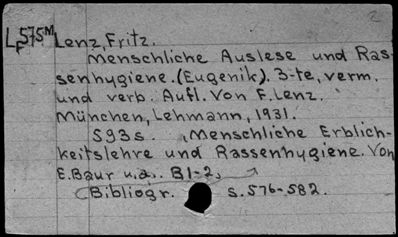 2
LF575M Lenz, Fritz.
Menschliche Auslese und Ras-
senhygiene. (Eugenik). 3-te, verm.
und verb. Aufl. Von F. Lenz.
München, Lehmann, 1931.
593s. (Menschliche Erblich-
keitslehre und Rassenhygiene. Von
E. Baur u.a. B1-2)
(Bibliogr. s. 576-582.